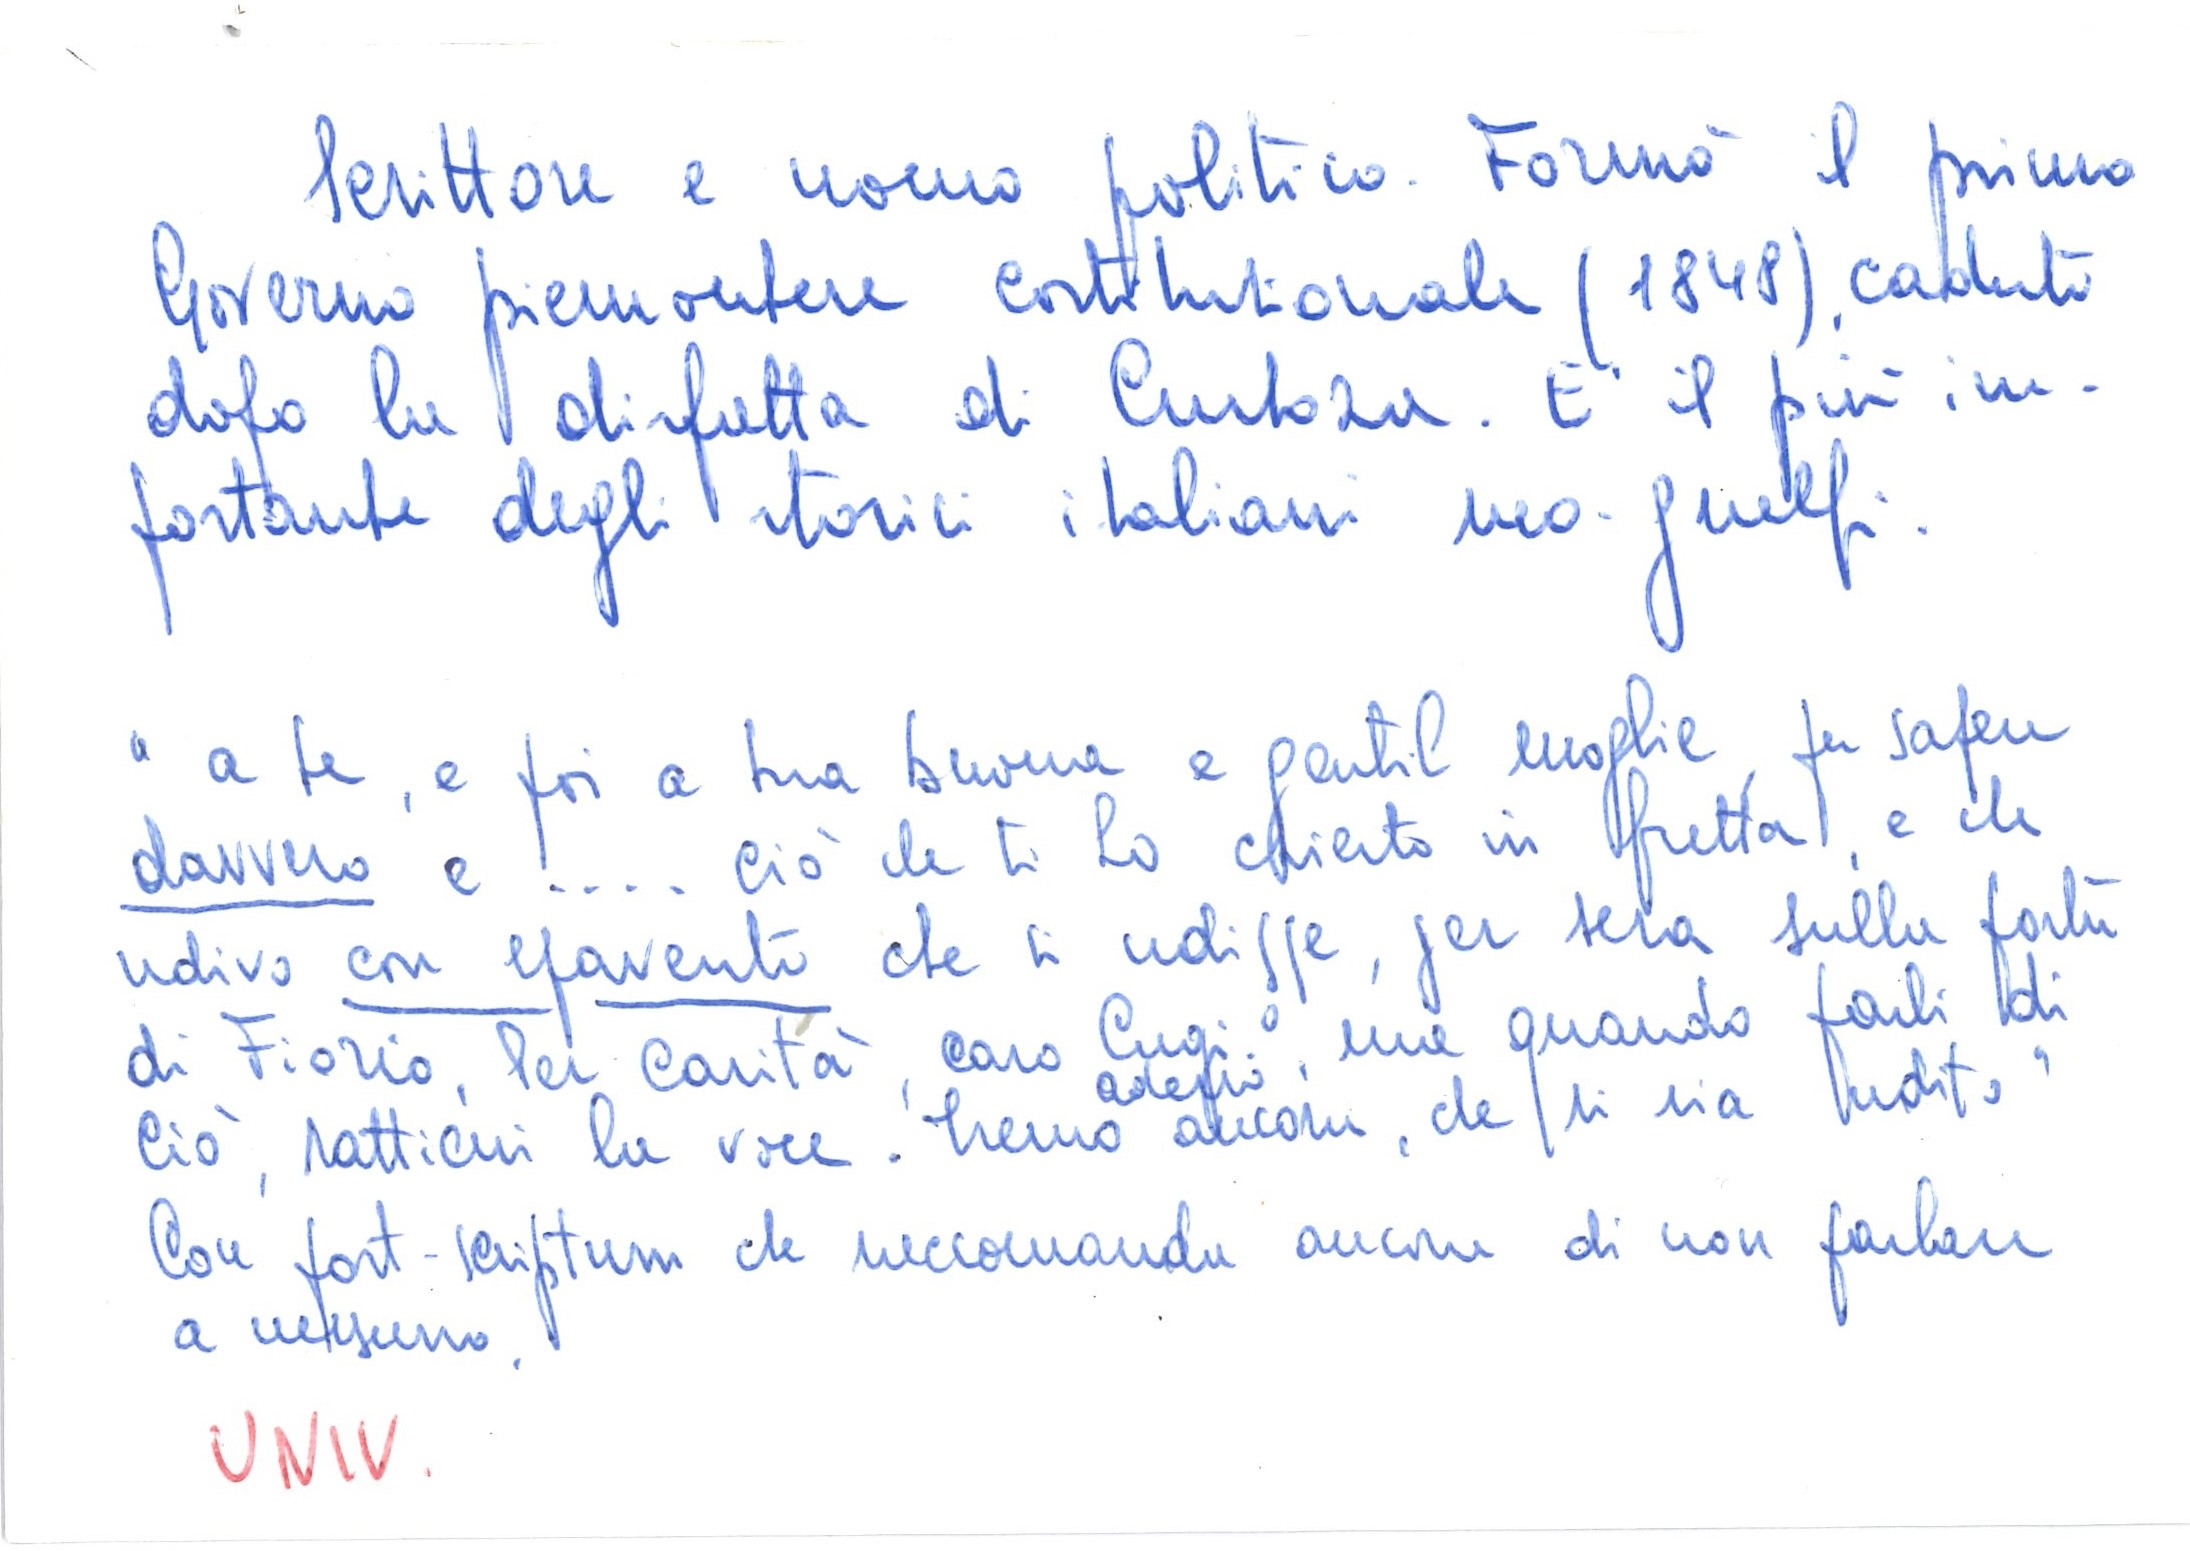 Scrittore e uomo politico. Formò il primo
Governo piemontese costituzionale (1848), caduto
dopo la disfatta di Custoza. È il più im-
portante degli storici italiani neo-guelfi.
" a te, e poi a tua buona e gentil moglie, per sapere
davvero e .... ciò che ti ho chiesto in fretta, e che
udivo con ispavento che si udisse, jer sera sulla porta
di Fiorio. Per carità, caro Cugi.°, me quando parli di
ciò, rattieni la voce. Tremo adesso ancora, che si sia udito"
Con post-scriptum che raccomanda ancora di non parlare
a nessuno.
UNIV.